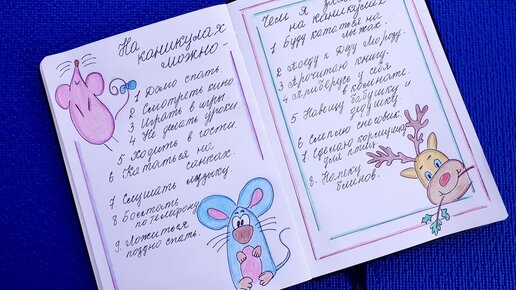 На
каникулах
можно -
1 Долго спать.
2 Смотреть кино.
3 Играть в игры.
4 Не делать уроки.
5 Ходить в гости.
6 Кататься на
санках.
7. Слушать музыку.
8 Болтать
по телефону.
9. Ложиться
поздно спать.
Чем я
на каникулах
1 Буду кататься на
лыжах.
2 Поеду к Деду Морозу.
3 Прочитаю книгу.
4 Приберусь у себя
в комнате.
5 Навещу бабушку и
дедушку.
6 Слеплю снеговик.
7. Сделаю кормушку
для птиц.
8. Напеку
блинов.